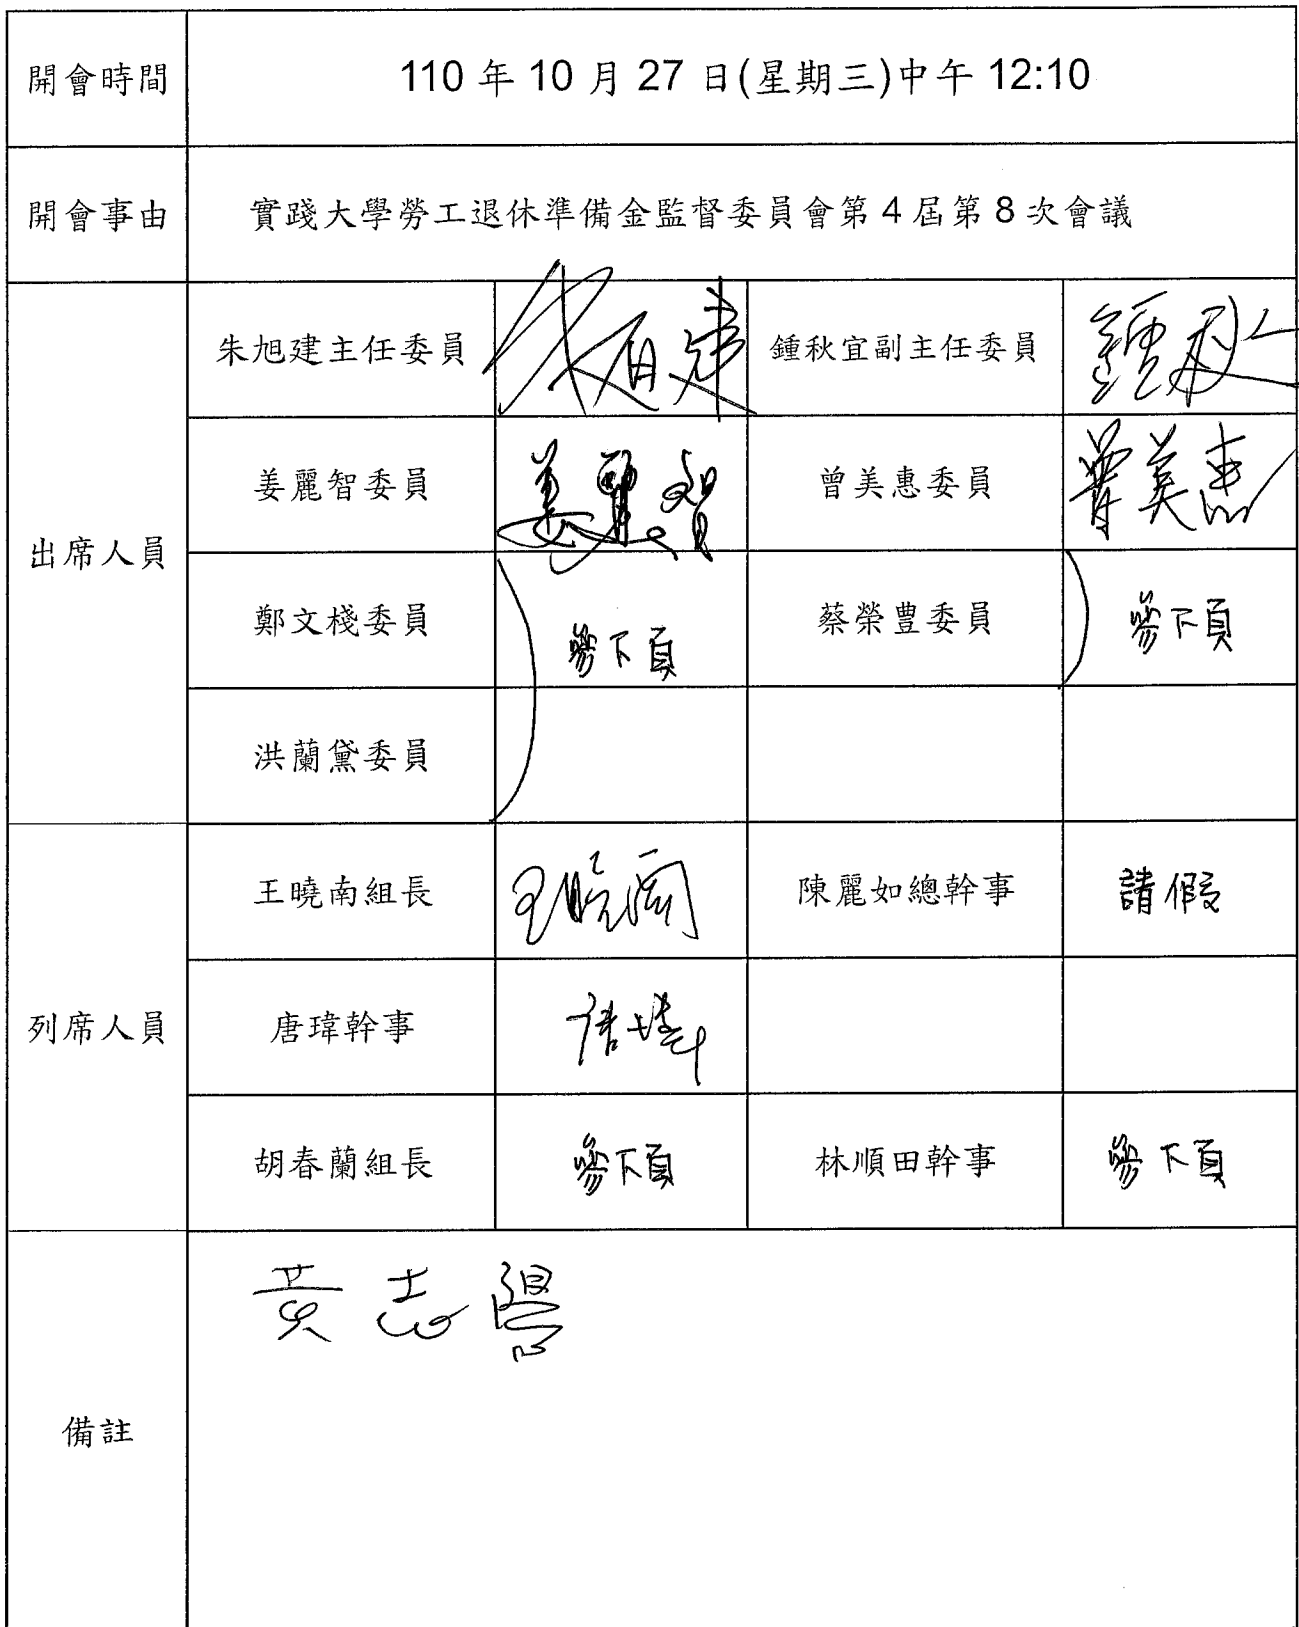 開會時間 110 年 10 月 27 日(星期三)中午 12:10
開會事由 實踐大學勞工退休準備金監督委員會第 4 屆第 8 次會議
出席人員
朱旭建主任委員 朱旭建 鍾秋宜副主任委員 鍾秋
姜麗智委員 姜麗智 曾美惠委員 曾美惠
鄭文棧委員 參下頁 蔡榮豊委員 參下頁
洪蘭黛委員
列席人員
王曉南組長 王曉南 陳麗如總幹事 請假
唐瑋幹事 唐瑋
胡春蘭組長 參下頁 林順田幹事 參下頁
備註
黃志